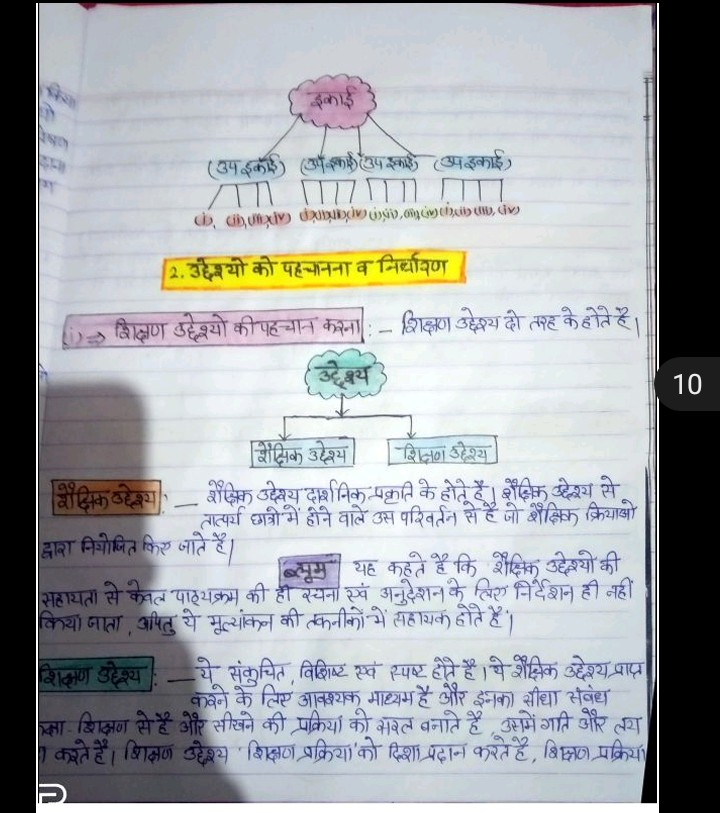 इकाई
(उप इकाई) (उप इकाई) (उप इकाई) (उप इकाई)
2. उद्देश्यो को पहचानना व निर्धारण
(i) ⇒ शिक्षण उद्देश्यो की पहचान करना : – शिक्षण उद्देश्य दो तरह के होते है।
उद्देश्य
शैक्षिक उद्देश्य शिक्षण उद्देश्य
10
शैक्षिक उद्देश्य : — शैक्षिक उद्देश्य दार्शनिक प्रकृति के होते है। शैक्षिक उद्देश्य से
तात्पर्य छात्रो में होने वाले उस परिवर्तन से है जो शैक्षिक क्रियाओ
द्वारा नियोजित किए जाते है।
ब्लूम यह कहते है कि शैक्षिक उद्देश्यो की
सहायता से केवल पाठ्यक्रम की ही रचना एवं अनुदेशन के लिए निर्देशन ही नहीं
किया जाता, अपितु ये मूल्यांकन की तकनीको में सहायक होते है।
शिक्षण उद्देश्य : — ये संकुचित, विशिष्ट एवं स्पष्ट होते है। ये शैक्षिक उद्देश्य प्राप्त
करने के लिए आवश्यक माध्यम है और इनका सीधा संबंध
शिक्षण से है और सीखने की प्रक्रिया को सरल बनाते है उसमें गति और लय
करते है। शिक्षण उद्देश्य 'शिक्षण प्रक्रिया' को दिशा प्रदान करते है, शिक्षण प्रक्रिया